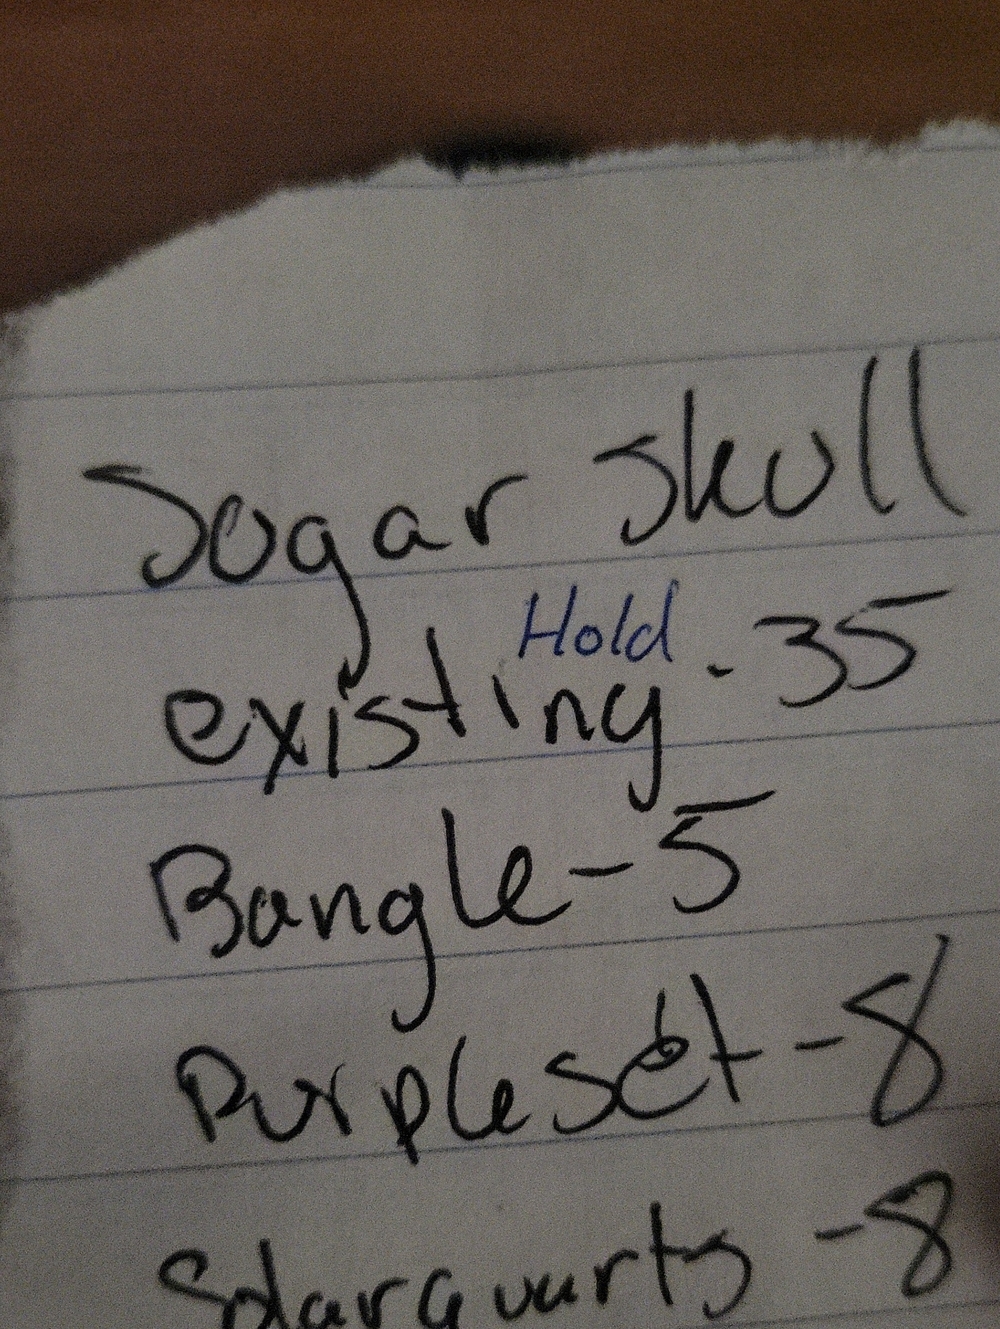 Sugar skull
Hold
existing - 35
Bangle - 5
Purple set - 8
Solar quarts - 8